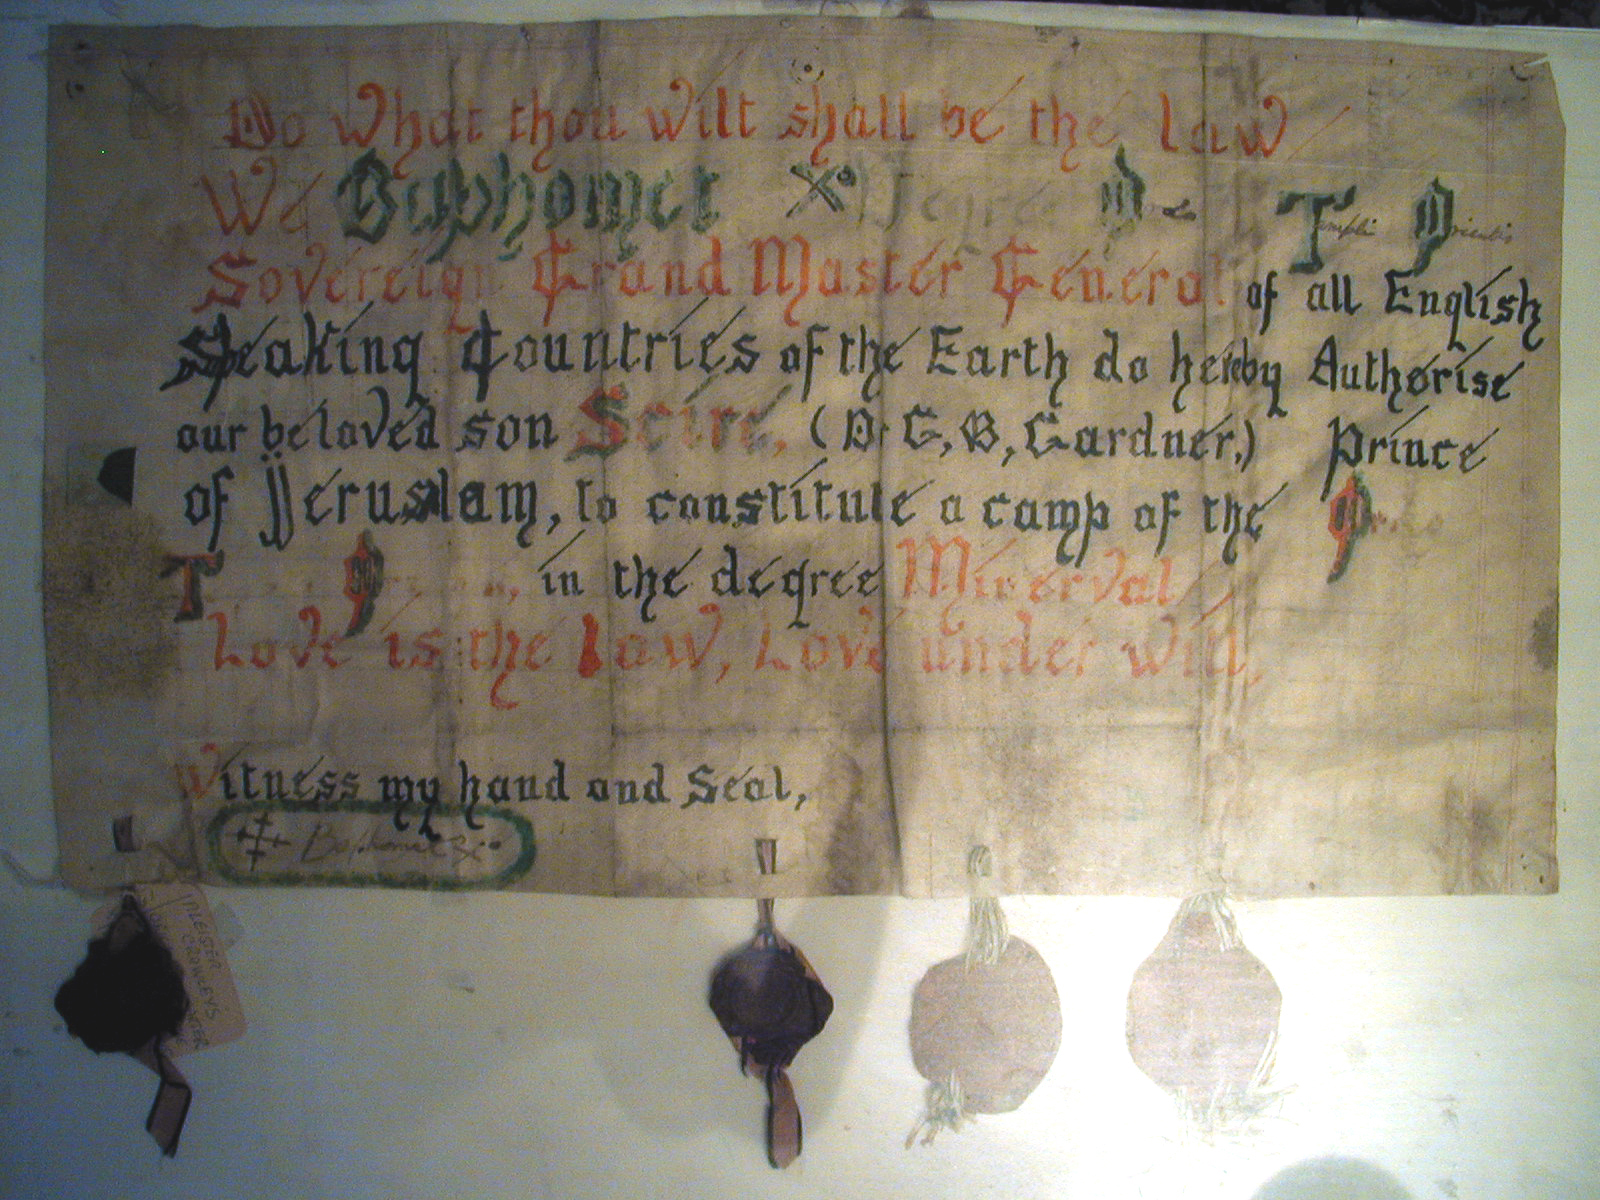 Do what thou wilt shall be the law
We Baphomet X° Degree Ordo Templi Orientis
Sovereign Grand Master General of all English
Speaking Countries of the Earth do hereby Authorise
our beloved son Scire, (Dr G,B,Gardner,) Prince
of Jeruslam, to constitute a camp of the Ordo
T O in the degree Minerval
Love is the law, Love under will,
Witness my hand and Seal,
Baphomet X°
ALEISTER
CROWLEYS